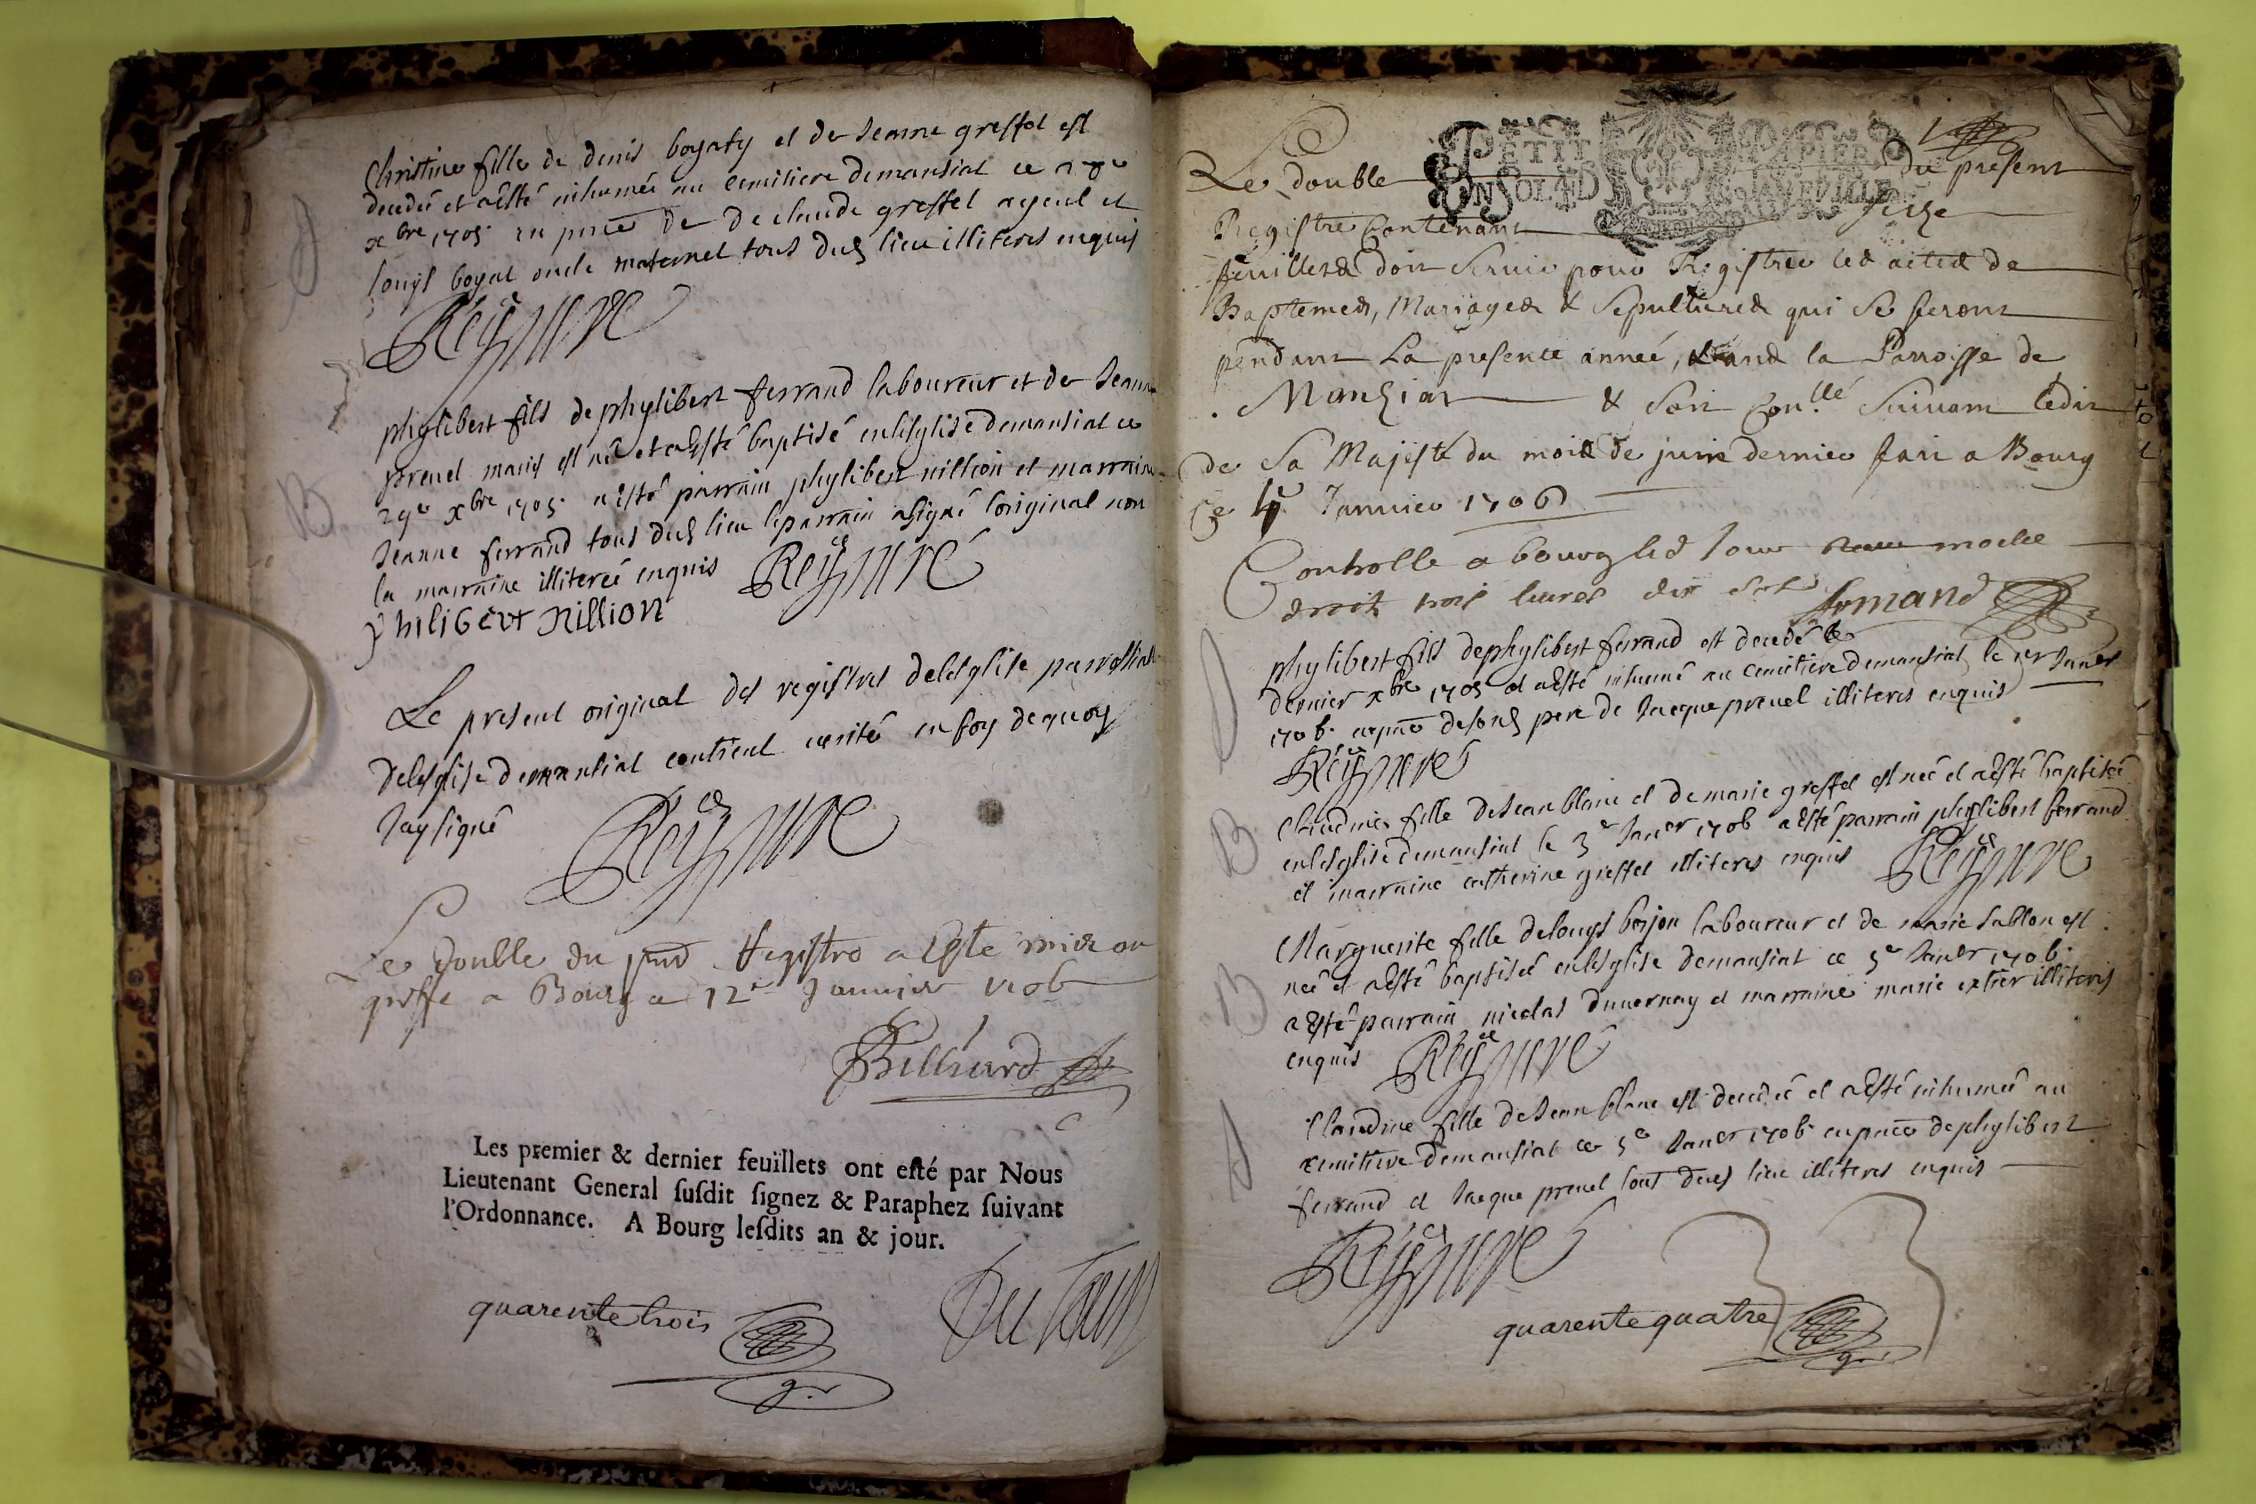 Christine fille de denis boyaty et de Jeanne greffet est
decedeé et aesté inhumeé au cemitiere demansiat ce
xbre 1705 en pnce de De claude greffet ayeul et
louys boyat oncle maternel tous dud lieu illiteres enquis
Rey cé
phylibert fils de phylibert ferrand laboureur et de Jeanne
prevel mariés est né et aesté baptisé enlesglise demansiat ce
29e xbre 1705 aesté parrain phylibert nillion et marraine
Jeanne ferrand tous dud lieu leparrain asigné loriginal non
la marraine illitereé enquis Rey cé
philibert Nillion
Le present original des registres delesglise parrossiale
delesglise demansiat contient verité en foy dequoy
Jaysigné
Rey cé
Le double du pnt Registre a Esté mis au
greffe a Bourg ce 12e Janvier 1706
Billiard
Les premier & dernier feuillets ont esté par Nous
Lieutenant General susdit signez & Paraphez suivant
l'Ordonnance. A Bourg lesdits an & jour.
quarente trois
PETIT PAPIER
UN SOL 4 D LA FEUILLE
Le double du present
Registre Contenant seize
feuilletes doit servir pour Registrer les actes de
Baptemes, Mariages & sepultures qui se feront
pendant La presente anneé, dans la Parroisse de
Manziat & son Conllé suivant ledit
de Sa Majesté du mois de juin dernier fait a Bourg
Ce 4e Janvier 1706
Controlle a bourg lesd Jour
droit trois livres dix sols
phylibert fils dephylibert ferrand est decedé le
dernier xbre 1705 et aesté inhumé au cemitiere demansiat le 1er Janer
1706 enpnce desond pere de Jacque prevel illiteres enquis
Rey cé
Claudine fille deJean blanc et de marie greffet est neé et aesté baptiseé
enlesglise demansiat le 3e Janer 1706 aesté parrain phylibert ferrand
et marraine catherine greffet illiteres enquis Rey cé
Marguerite fille delouys borjon laboureur et de marie sablon est
neé et aesté baptiseé enlesglise demansiat ce 5e Janer 1706
aesté parrain nicolas duvernay et marraine marie illiteres
enquis Rey cé
Claudine fille deJean blanc est decedeé et aesté inhumeé au
cemitiere demansiat ce 5e Janer 1706 enpnce dephylibert
ferrand et Jacque prevel tout dud lieu illiteres enquis
Rey cé
quarente quatre